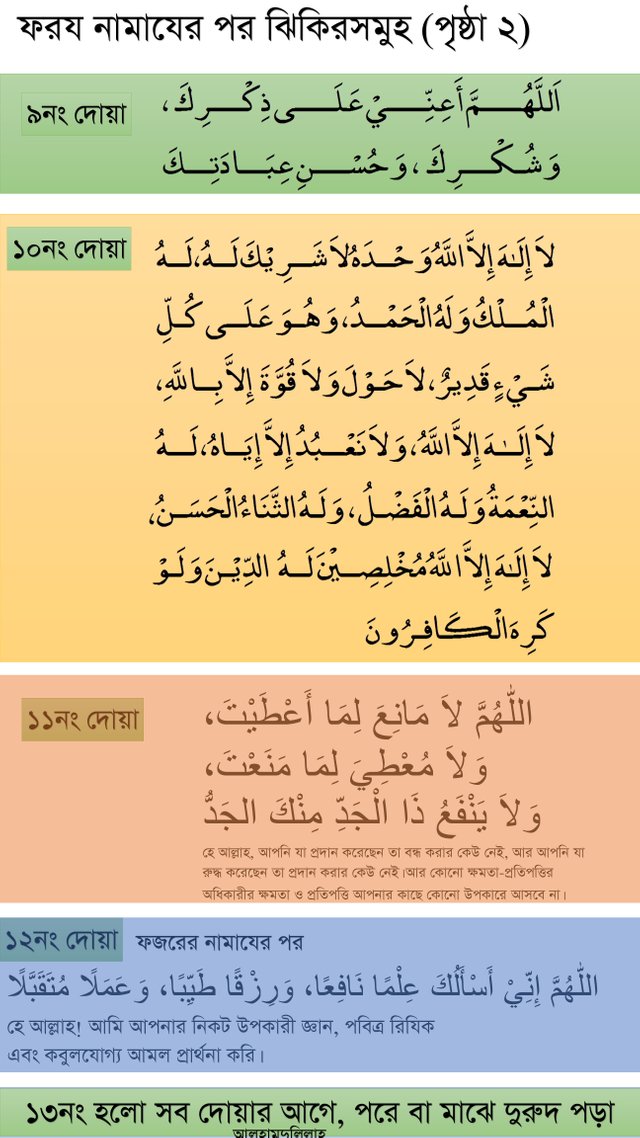 ফরয নামাযের পর ঝিকিরসমুহ (পৃষ্ঠা ২)
৯নং দোয়া
اَللَّهُمَّ أَعِنِّيْ عَلَى ذِكْرِكَ،
وَشُكْرِكَ، وَحُسْنِ عِبَادَتِكَ
১০নং দোয়া
لاَ إِلَهَ إِلاَّ اللَّهُ وَحْدَهُ لاَ شَرِيْكَ لَهُ، لَهُ
الْمُلْكُ وَلَهُ الْحَمْدُ، وَهُوَ عَلَى كُلِّ
شَيْءٍ قَدِيرٌ، لاَ حَوْلَ وَلاَ قُوَّةَ إِلاَّ بِاللَّهِ،
لاَ إِلَهَ إِلاَّ اللَّهُ، وَلاَ نَعْبُدُ إِلاَّ إِيَاهُ، لَهُ
النِّعْمَةُ وَلَهُ الْفَضْلُ، وَلَهُ الثَّنَاءُ الْحَسَنُ،
لاَ إِلَهَ إِلاَّ اللَّهُ مُخْلِصِيْنَ لَهُ الدِّيْنَ وَلَوْ
كَرِهَ الْكَافِرُونَ
১১নং দোয়া
اللّٰهُمَّ لاَ مَانِعَ لِمَا أَعْطَيْتَ،
وَلاَ مُعْطِيَ لِمَا مَنَعْتَ،
وَلاَ يَنْفَعُ ذَا الْجَدِّ مِنْكَ الجَدُّ
হে আল্লাহ, আপনি যা প্রদান করেছেন তা বন্ধ করার কেউ নেই, আর আপনি যা
রুদ্ধ করেছেন তা প্রদান করার কেউ নেই।আর কোনো ক্ষমতা-প্রতিপত্তির
অধিকারীর ক্ষমতা ও প্রতিপত্তি আপনার কাছে কোনো উপকারে আসবে না।
১২নং দোয়া ফজরের নামাযের পর
اللّٰهُمَّ إِنِّيْ أَسْأَلُكَ عِلْمًا نَافِعًا، وَرِزْقًا طَيِّبًا، وَعَمَلًا مُتَقَبَّلًا
হে আল্লাহ! আমি আপনার নিকট উপকারী জ্ঞান, পবিত্র রিযিক
এবং কবুলযোগ্য আমল প্রার্থনা করি।
১৩নং হলো সব দোয়ার আগে, পরে বা মাঝে দুরুদ পড়া
আলহামদুলিলাহ